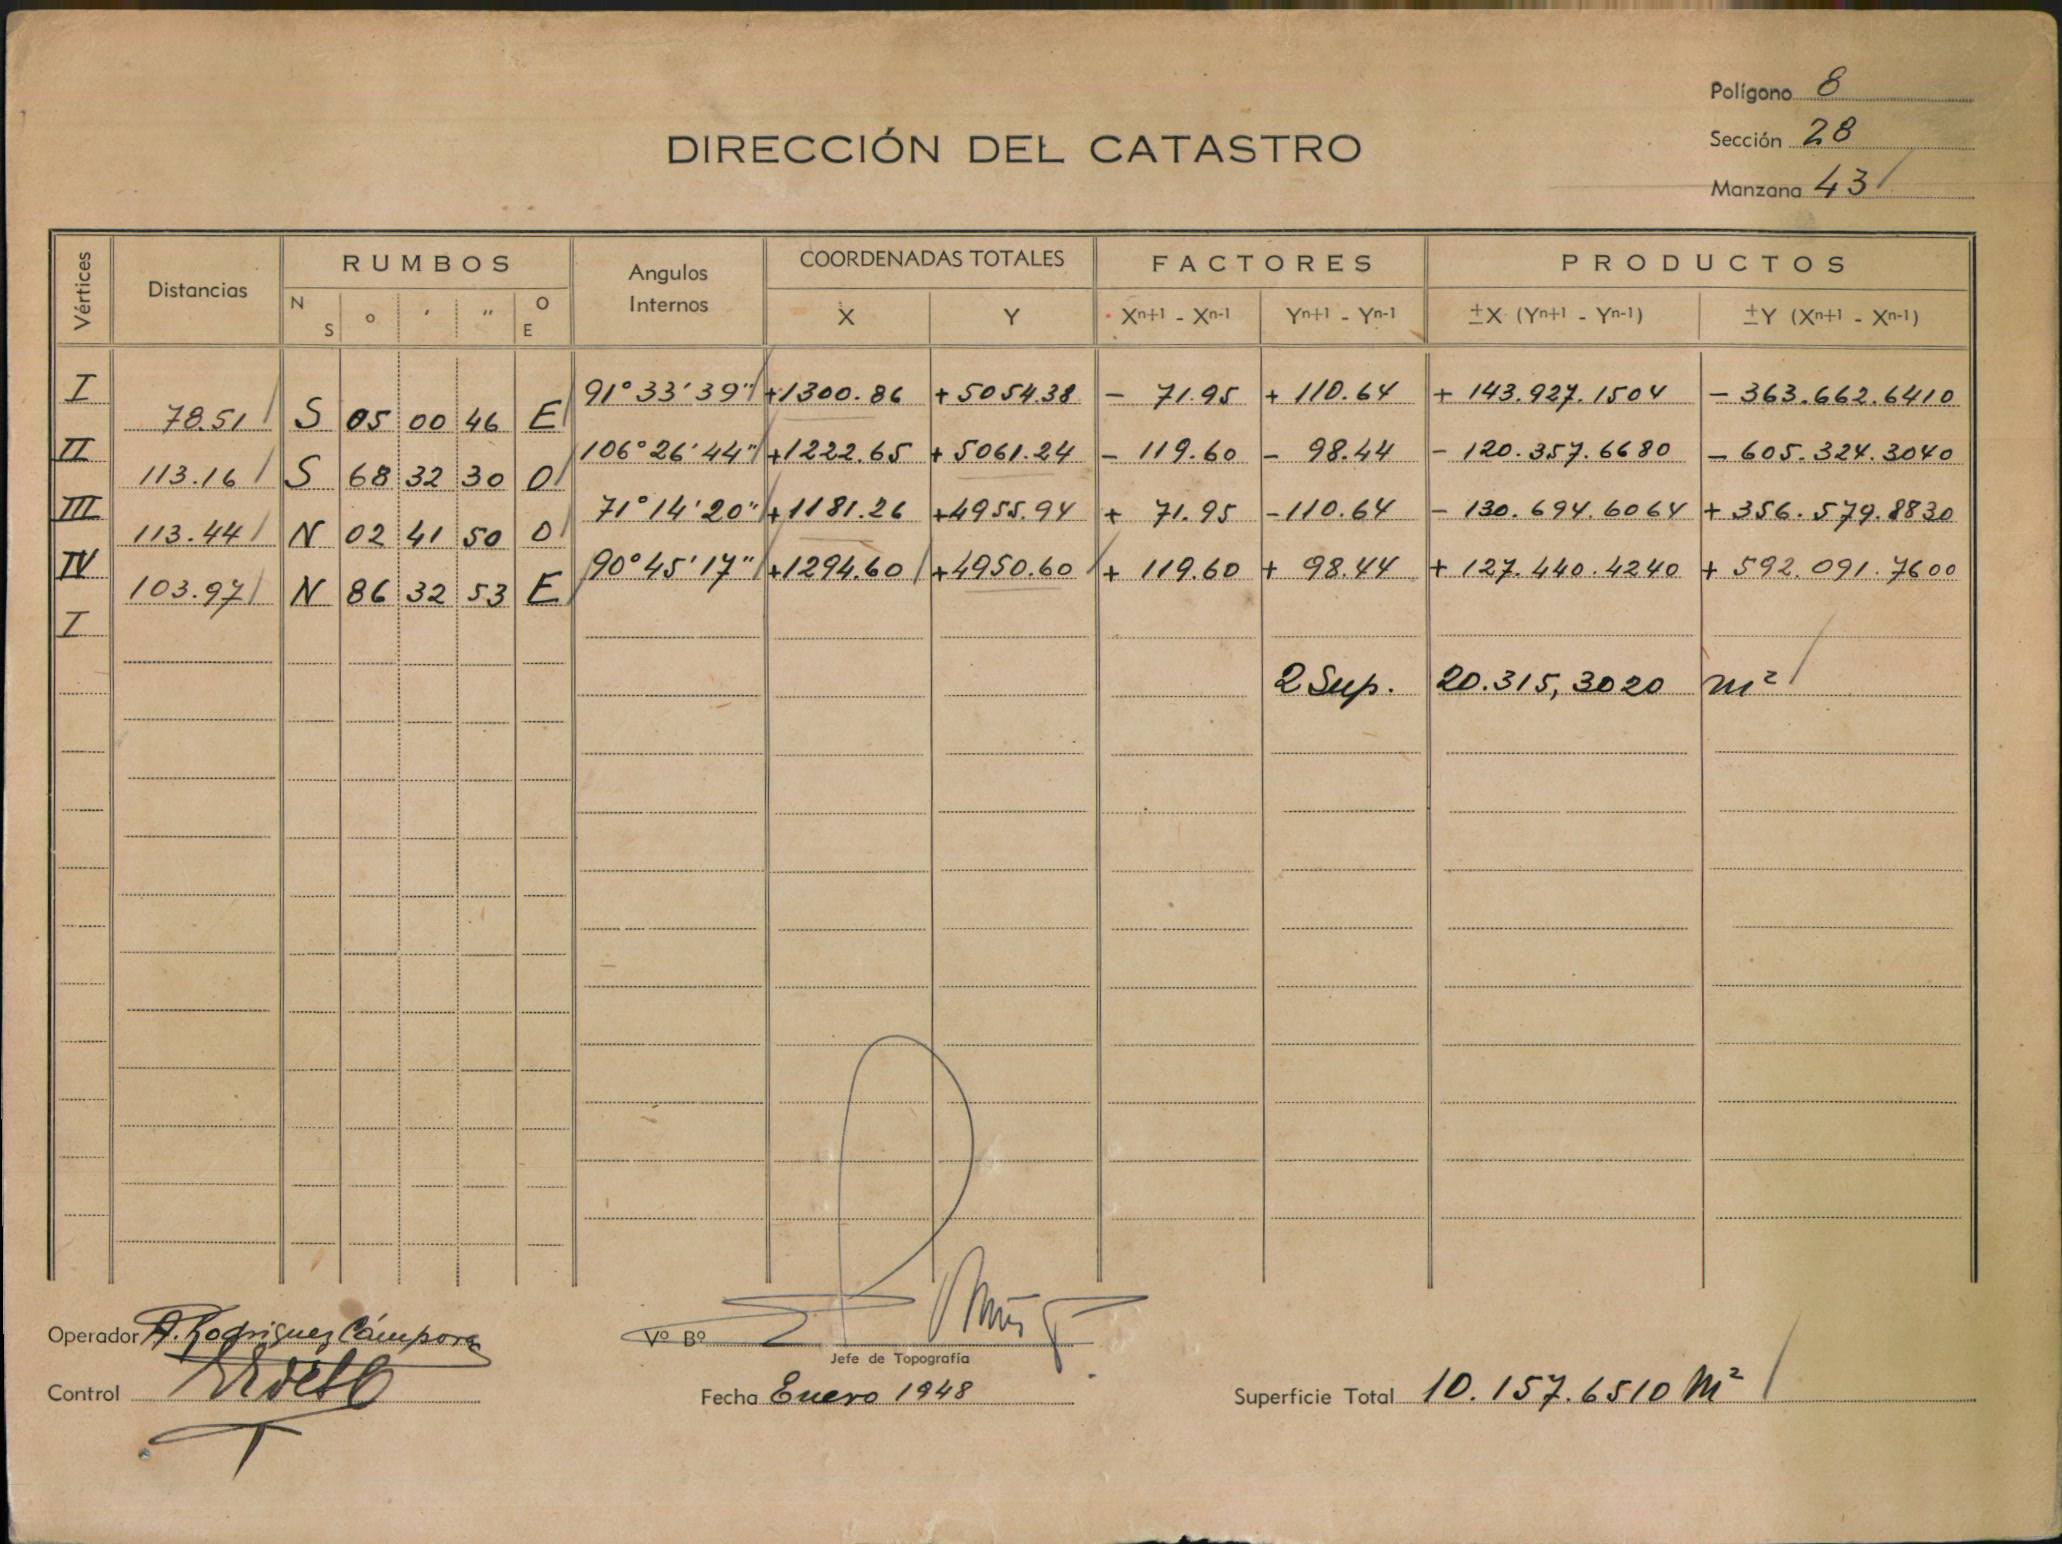 Polígono 8
DIRECCIÓN DEL CATASTRO
Sección 28
Manzana 43
Vértices Distancias RUMBOS Angulos Internos COORDENADAS TOTALES FACTORES PRODUCTOS
N S o ' " O E X Y Xn+1 - Xn-1 Yn+1 - Yn-1 ±X (Yn+1 - Yn-1) ±Y (Xn+1 - Xn-1)
I 91° 33' 39" +1300.86 +5054.38 - 71.95 + 110.64 + 143.927.1504 - 363.662.6410
78.51 S 05 00 46 E
II 106° 26' 44" +1222.65 +5061.24 - 119.60 - 98.44 - 120.357.6680 - 605.324.3040
113.16 S 68 32 30 O
III 71° 14' 20" +1181.26 +4955.94 + 71.95 -110.64 - 130.694.6064 + 356.579.8830
113.44 N 02 41 50 O
IV 90° 45' 17" +1294.60 +4950.60 + 119.60 + 98.44 + 127.440.4240 + 592.091.7600
103.97 N 86 32 53 E
I
2 Sup. 20.315,3020 m²
Operador A. Rodriguez Cámpora
Vº Bº
Jefe de Topografía
Control
Fecha Enero 1948
Superficie Total 10.157.6510 M²